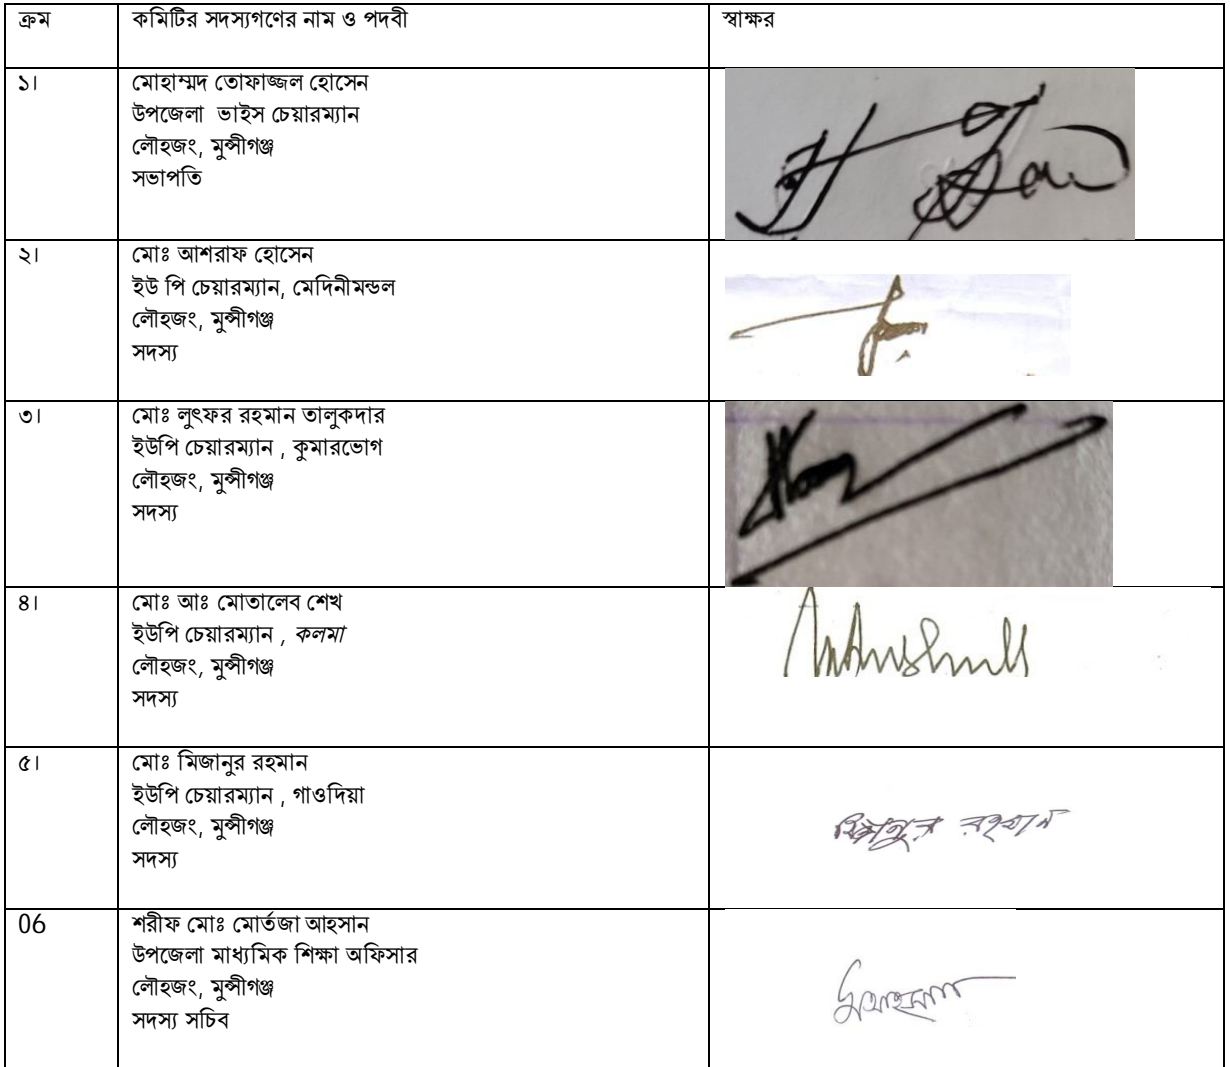 ক্রম
কমিটির সদস্যগণের নাম ও পদবী
স্বাক্ষর
১।
মোহাম্মদ তোফাজ্জল হোসেন
উপজেলা ভাইস চেয়ারম্যান
লৌহজং, মুন্সীগঞ্জ
সভাপতি
২।
মোঃ আশরাফ হোসেন
ইউ পি চেয়ারম্যান, মেদিনীমন্ডল
লৌহজং, মুন্সীগঞ্জ
সদস্য
৩।
মোঃ লুৎফর রহমান তালুকদার
ইউপি চেয়ারম্যান , কুমারভোগ
লৌহজং, মুন্সীগঞ্জ
সদস্য
৪।
মোঃ আঃ মোতালেব শেখ
ইউপি চেয়ারম্যান , কলমা
লৌহজং, মুন্সীগঞ্জ
সদস্য
৫।
মোঃ মিজানুর রহমান
ইউপি চেয়ারম্যান , গাওদিয়া
লৌহজং, মুন্সীগঞ্জ
সদস্য
মিজানুর রহমান
06
শরীফ মোঃ মোর্তজা আহসান
উপজেলা মাধ্যমিক শিক্ষা অফিসার
লৌহজং, মুন্সীগঞ্জ
সদস্য সচিব